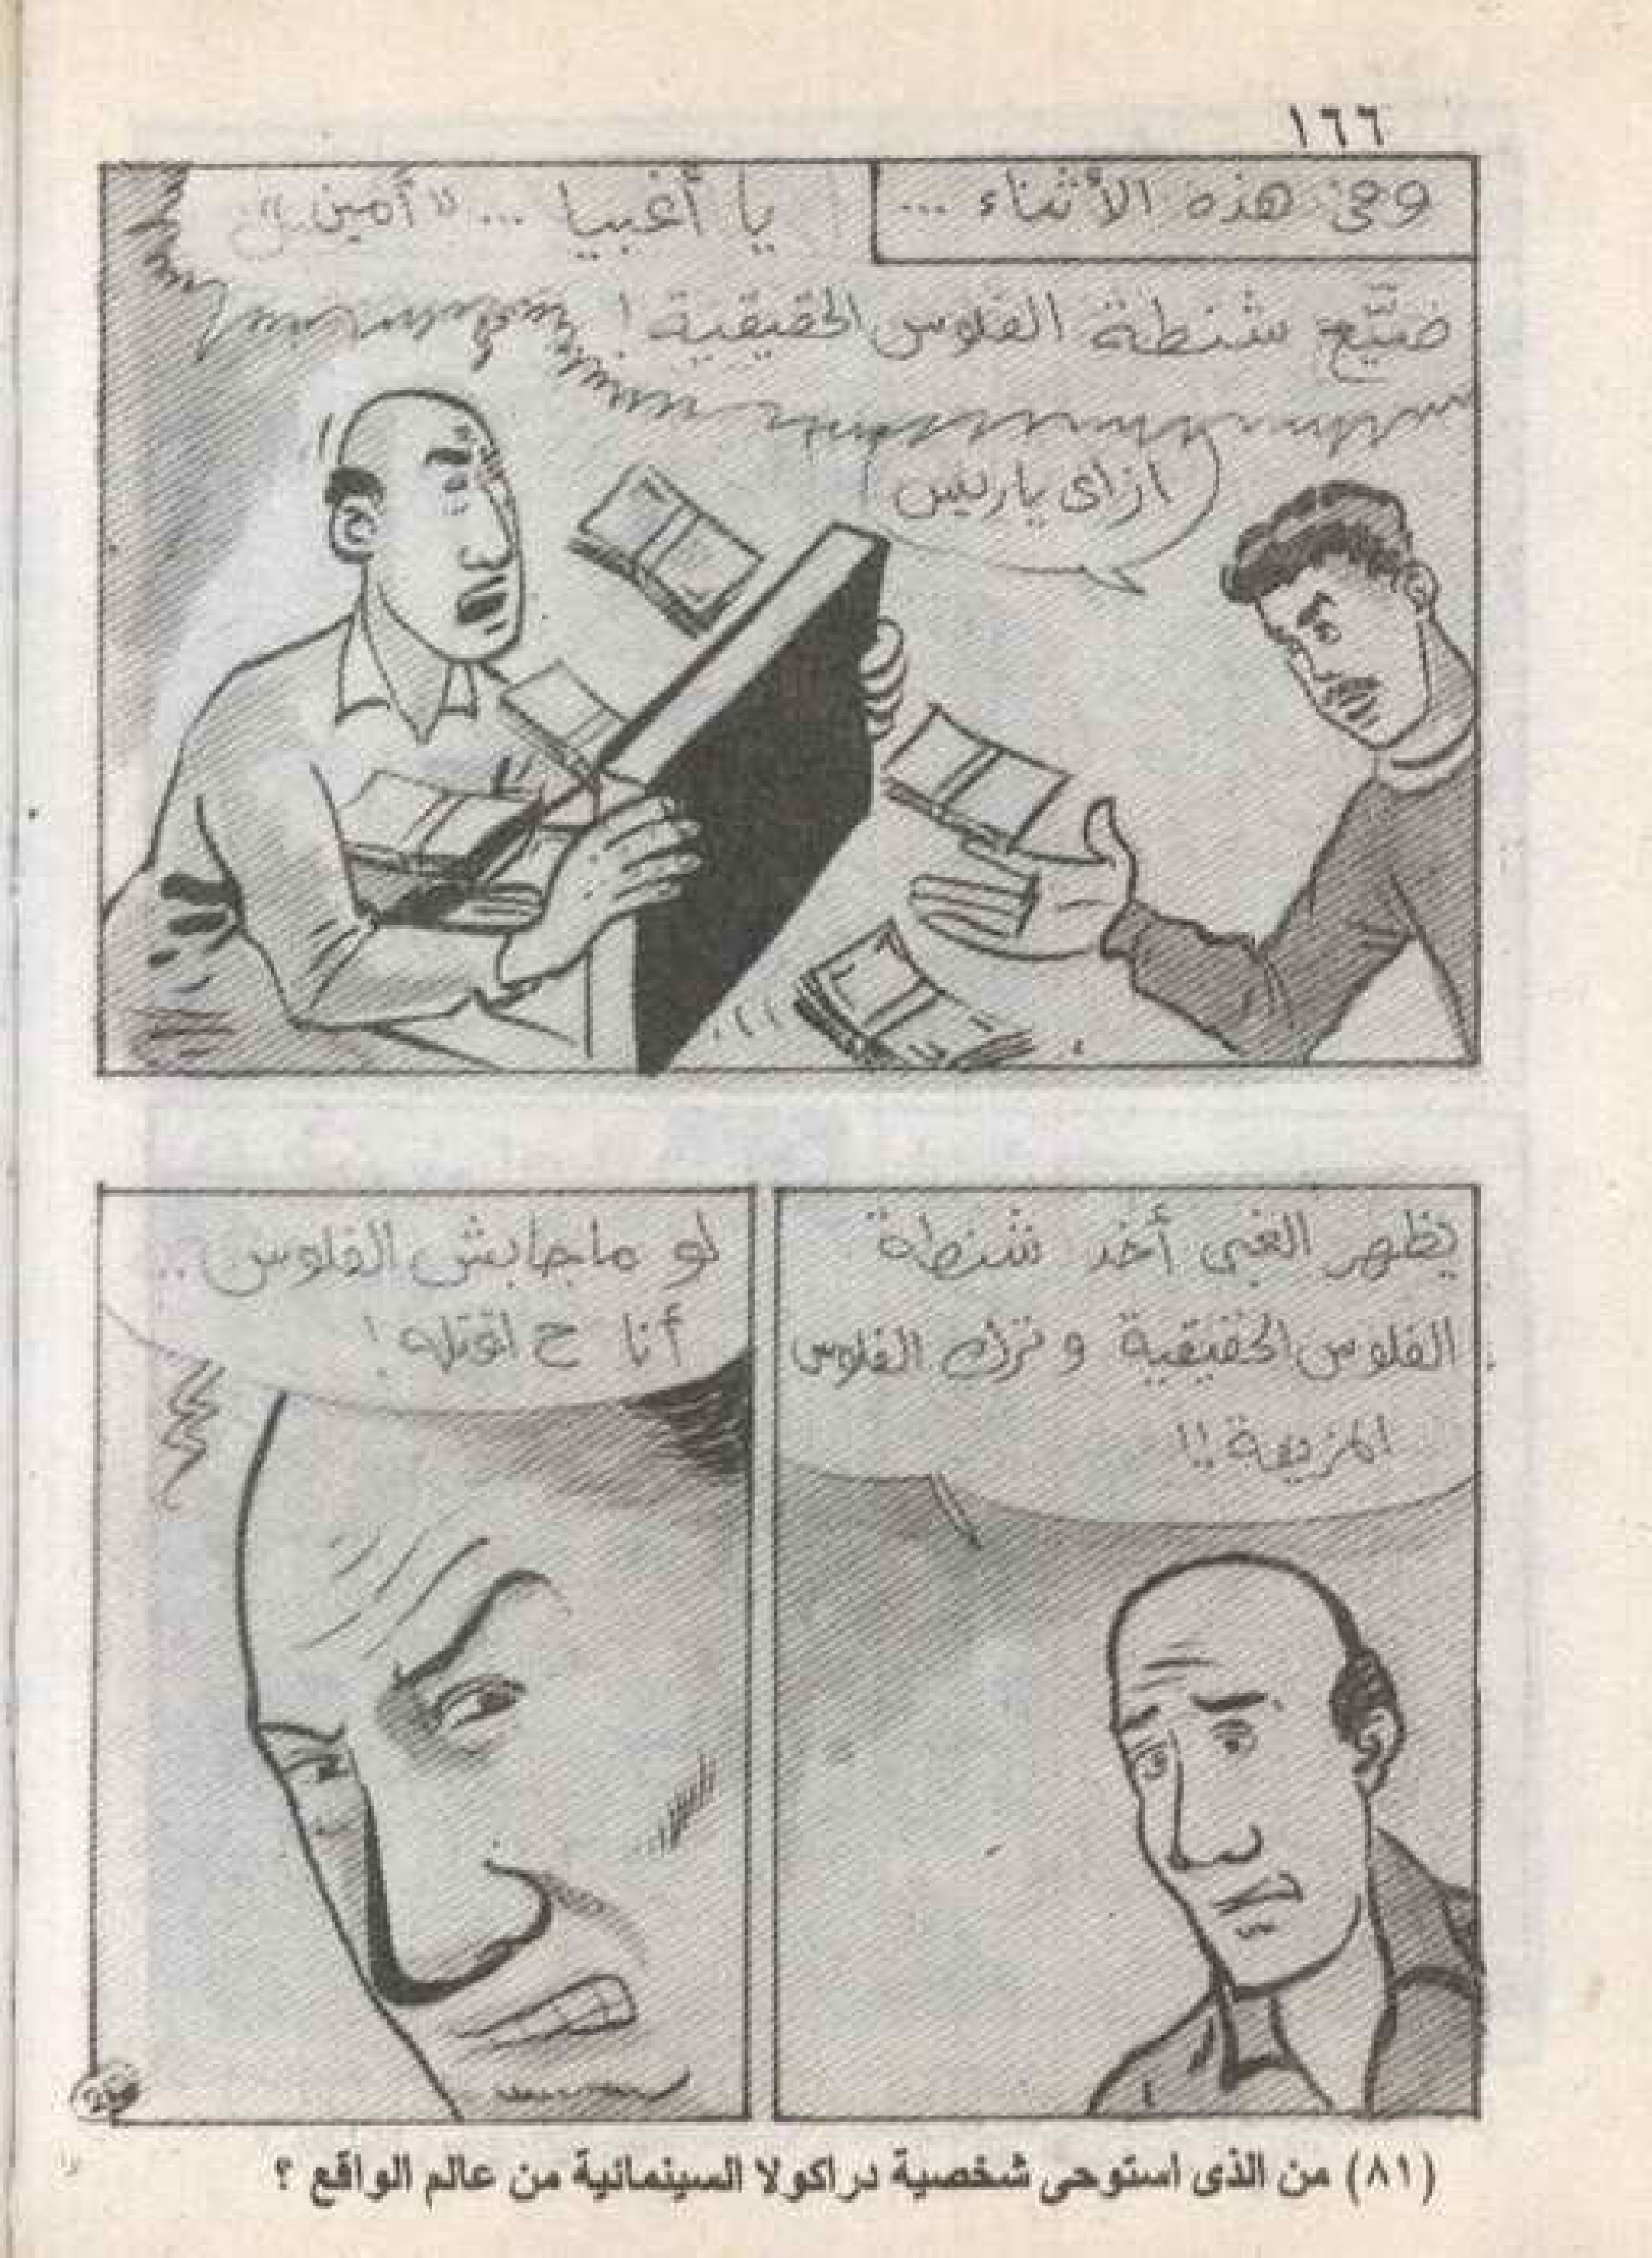 ١٦٦
وفى هذه الأثناء ...
يا أغبيا ... «أمين»
ضيّع شنطة الفلوس الحقيقية !
ازاى ياريس
يظهر الغبى أخد شنطة
الفلوس الحقيقية وترك الفلوس
المزيفة !!
لو ماجابش الفلوس ..
أنا ح اقتله !
(٨١) من الذى استوحى شخصية دراكولا السينمائية من عالم الواقع ؟